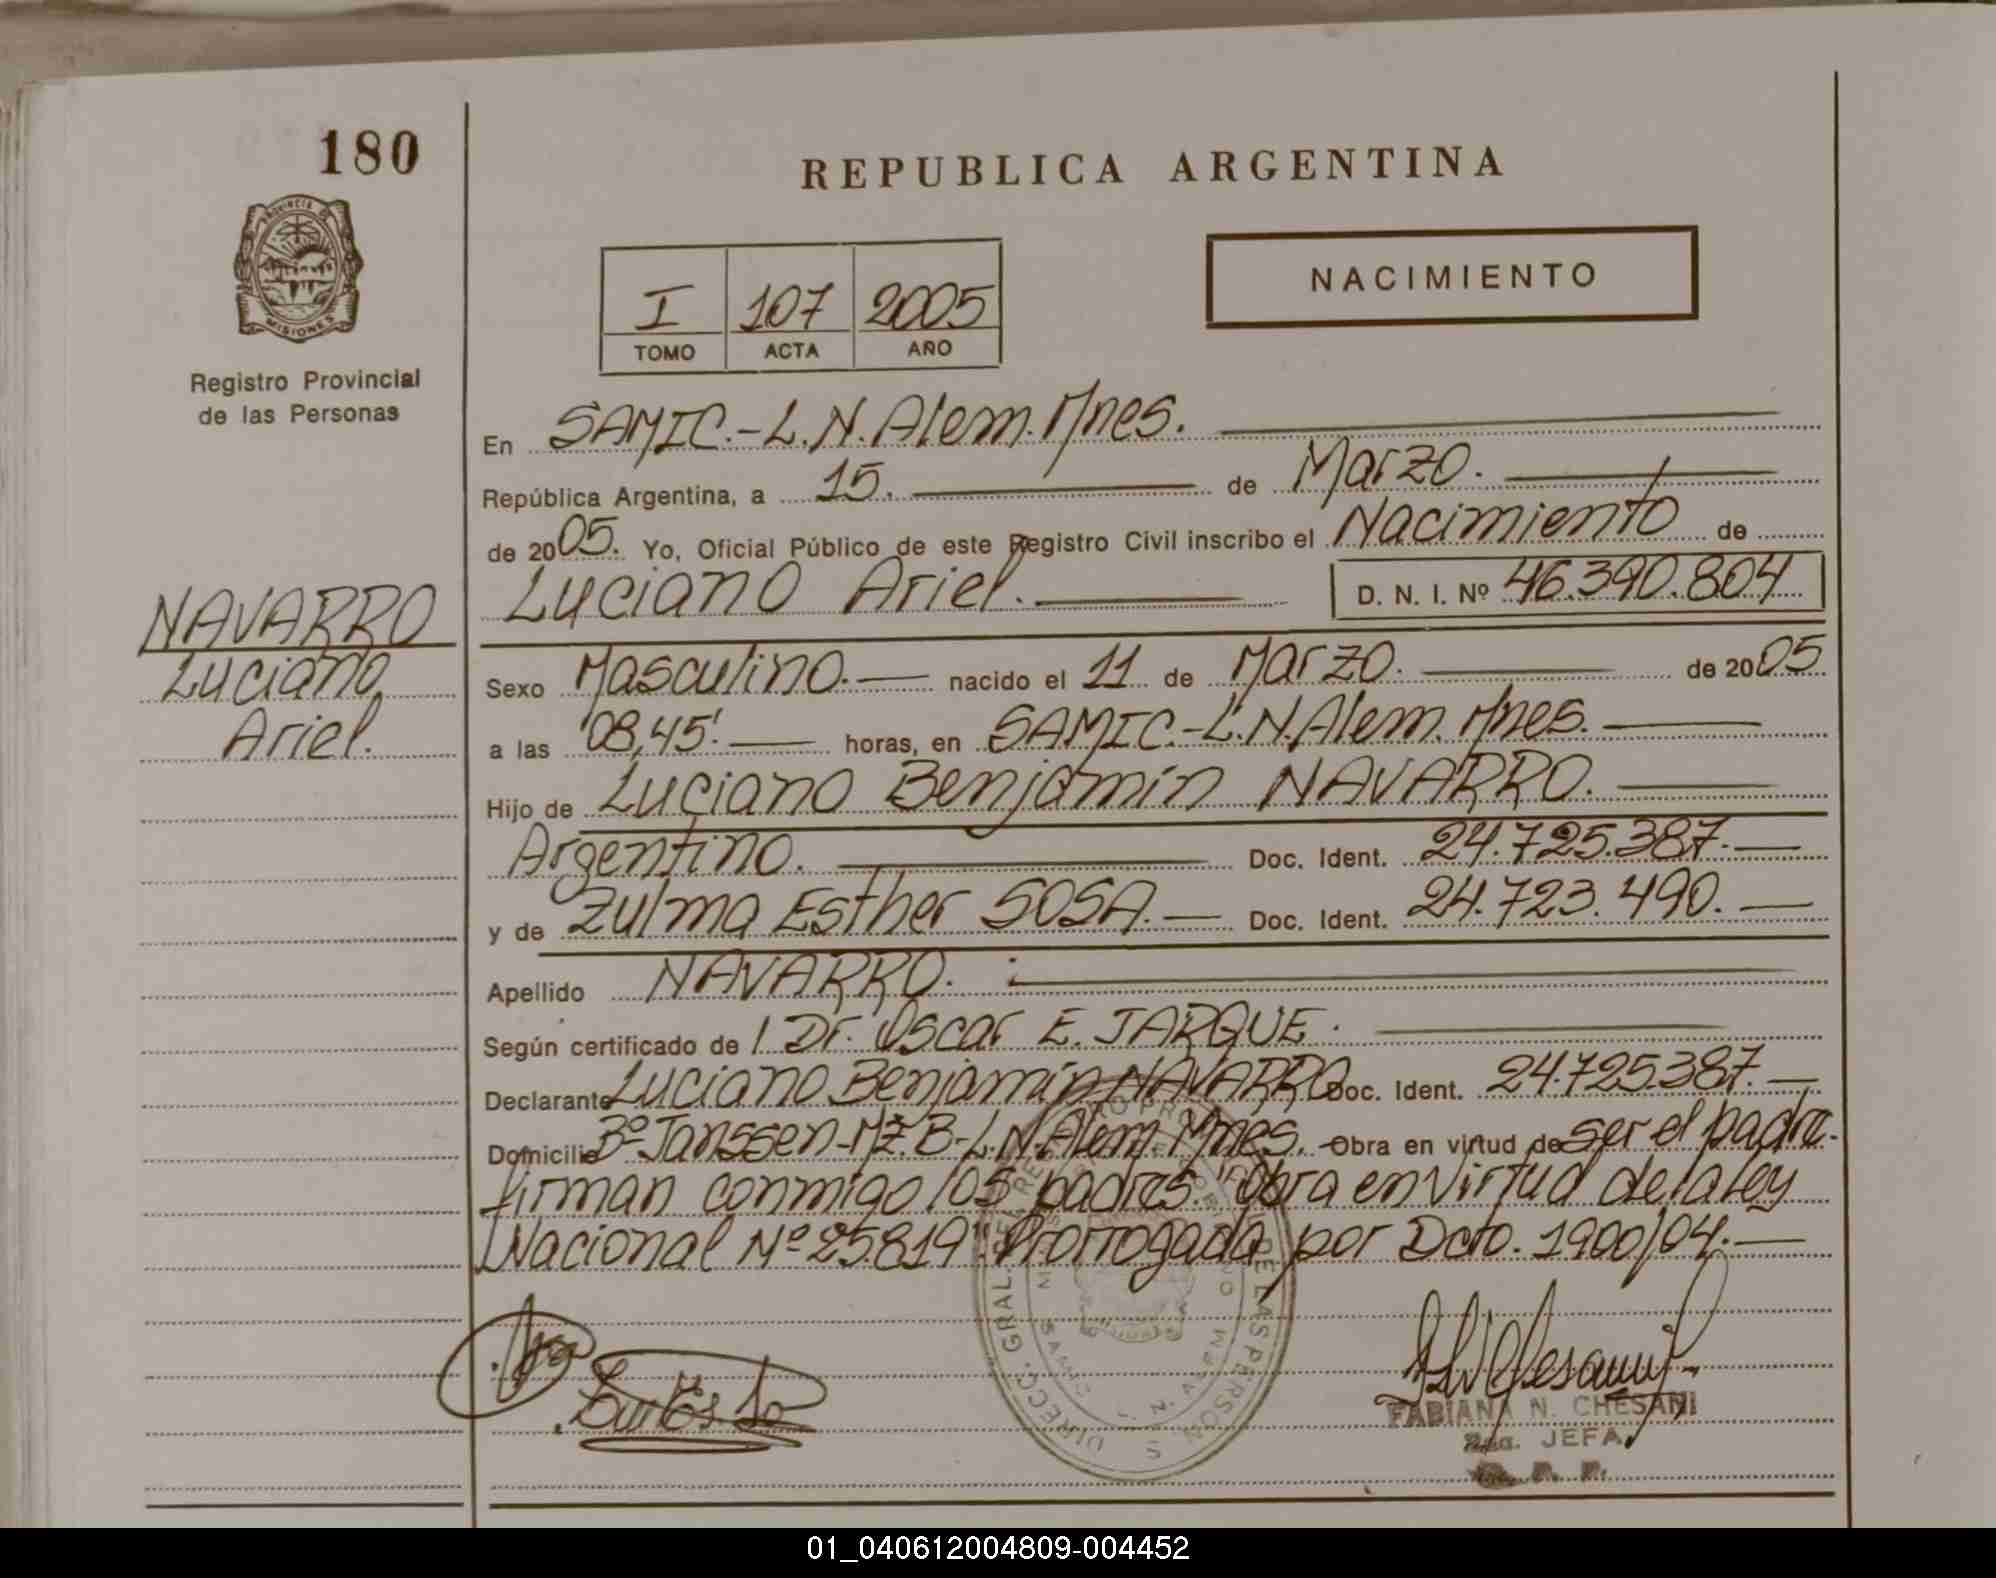 180
REPUBLICA ARGENTINA
PROVINCIA DE
MISIONES
Registro Provincial
de las Personas
I 107 2005
TOMO ACTA AÑO
NACIMIENTO
En SAMIC.-L.N.Alem.Mnes.
República Argentina, a 15. de Marzo.
de 2005. Yo, Oficial Público de este Registro Civil inscribo el Nacimiento de
Luciano Ariel. D. N. I. Nº 46.390.804
NAVARRO
Luciano
Ariel.
Sexo Masculino. nacido el 11 de Marzo. de 2005
a las 08,45'. horas, en SAMIC.-L.N.Alem. Mnes.
Hijo de Luciano Benjamín NAVARRO.
Argentino. Doc. Ident. 24.725.387.
y de Zulma Esther SOSA. Doc. Ident. 24.723.490.
Apellido NAVARRO.
Según certificado de l Dr. Oscar E. JARQUE.
Declarante Luciano Benjamín NAVARRO Doc. Ident. 24.725.387.
Domicilio Bº Janssen-Mz. B-L.N.Alem. Mnes. Obra en virtud de ser el padre.
firman conmigo los padres. "Obra en Virtud de la Ley
Nacional Nº 25.819". Prorrogada por Dcto. 1900/04.
FABIANA N. CHESANI
JEFA
01_040612004809-004452